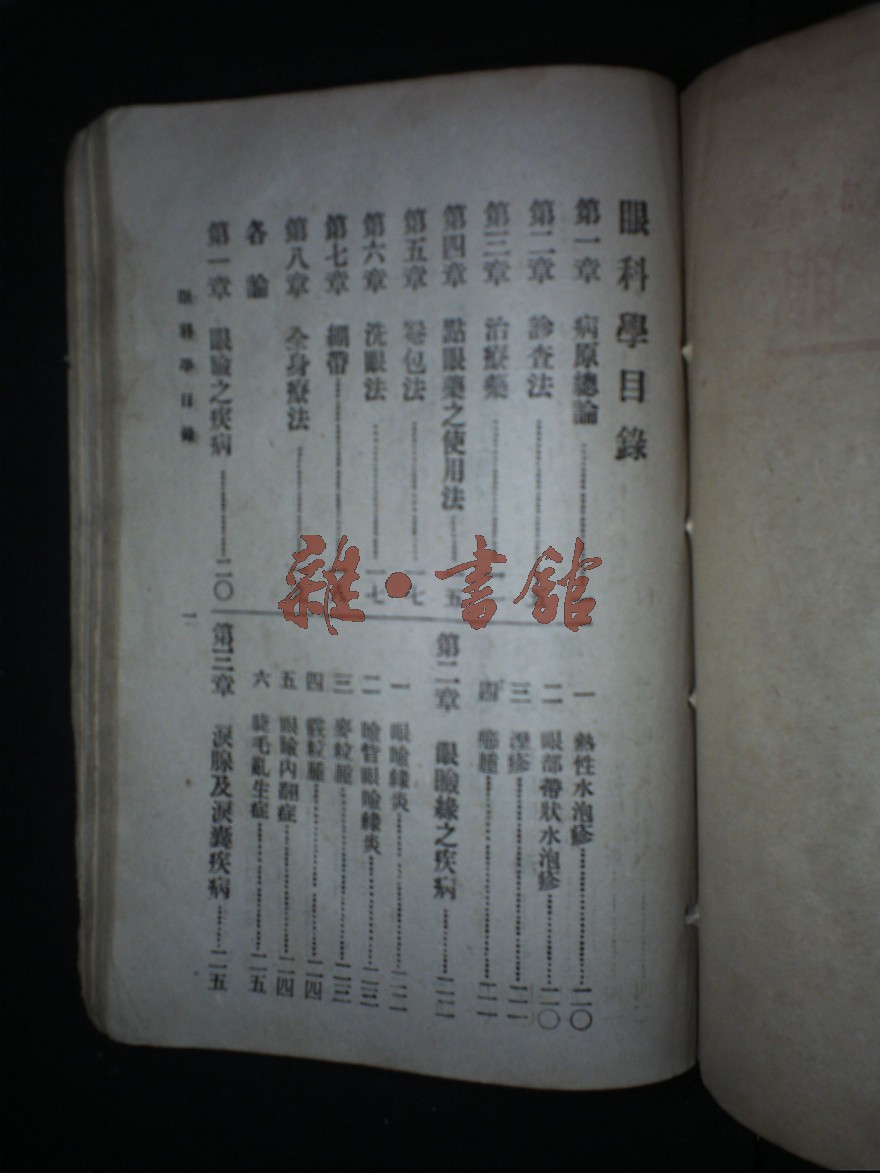 眼科學目錄
第一章　病原總論
第二章　診查法
第三章　治療藥
第四章　點眼藥之使用法………五
第五章　罨包法………一七
第六章　洗眼法………一七
第七章　綳帶
第八章　全身療法
各論
第一章　眼瞼之疾病………二〇
一　熱性水泡疹………二〇
二　眼部帶狀水泡疹………二〇
三　溼疹………二一
四　癤腫………二一
第二章　眼瞼緣之疾病………二二
一　眼瞼緣炎………二二
二　瞼眥眼瞼緣炎………二三
三　麥粒腫………二三
四　霰粒腫………二四
五　眼瞼內翻症………二四
六　睫毛亂生症………二五
第三章　淚腺及淚囊疾病………二五
眼科學目錄
一
雜·書館